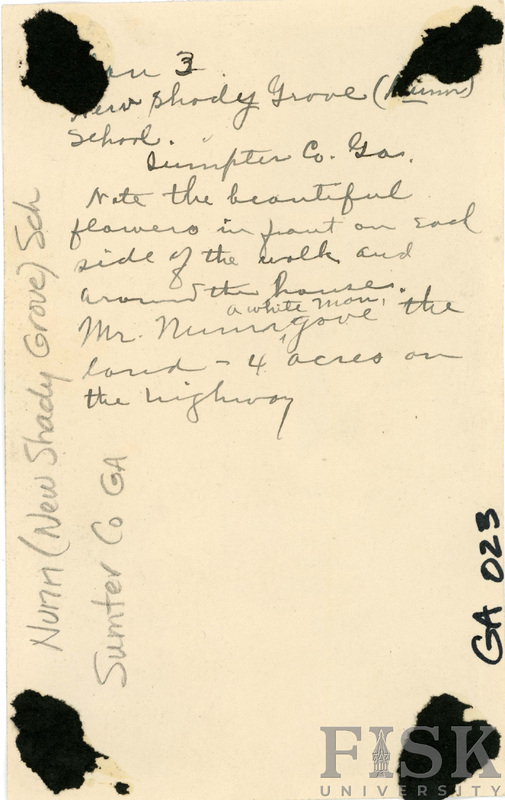 3
New Shady Grove (Nunn)
School.
Sumpter Co. Ga.
Note the beautiful
flowers in front on each
side of the walk and
around the house.
a white man,
Mr. Nunn, gave the
land – 4 acres on
the highway
Nunn (New Shady Grove) Sch
Sumter Co GA
GA 023
FISK
UNIVERSITY